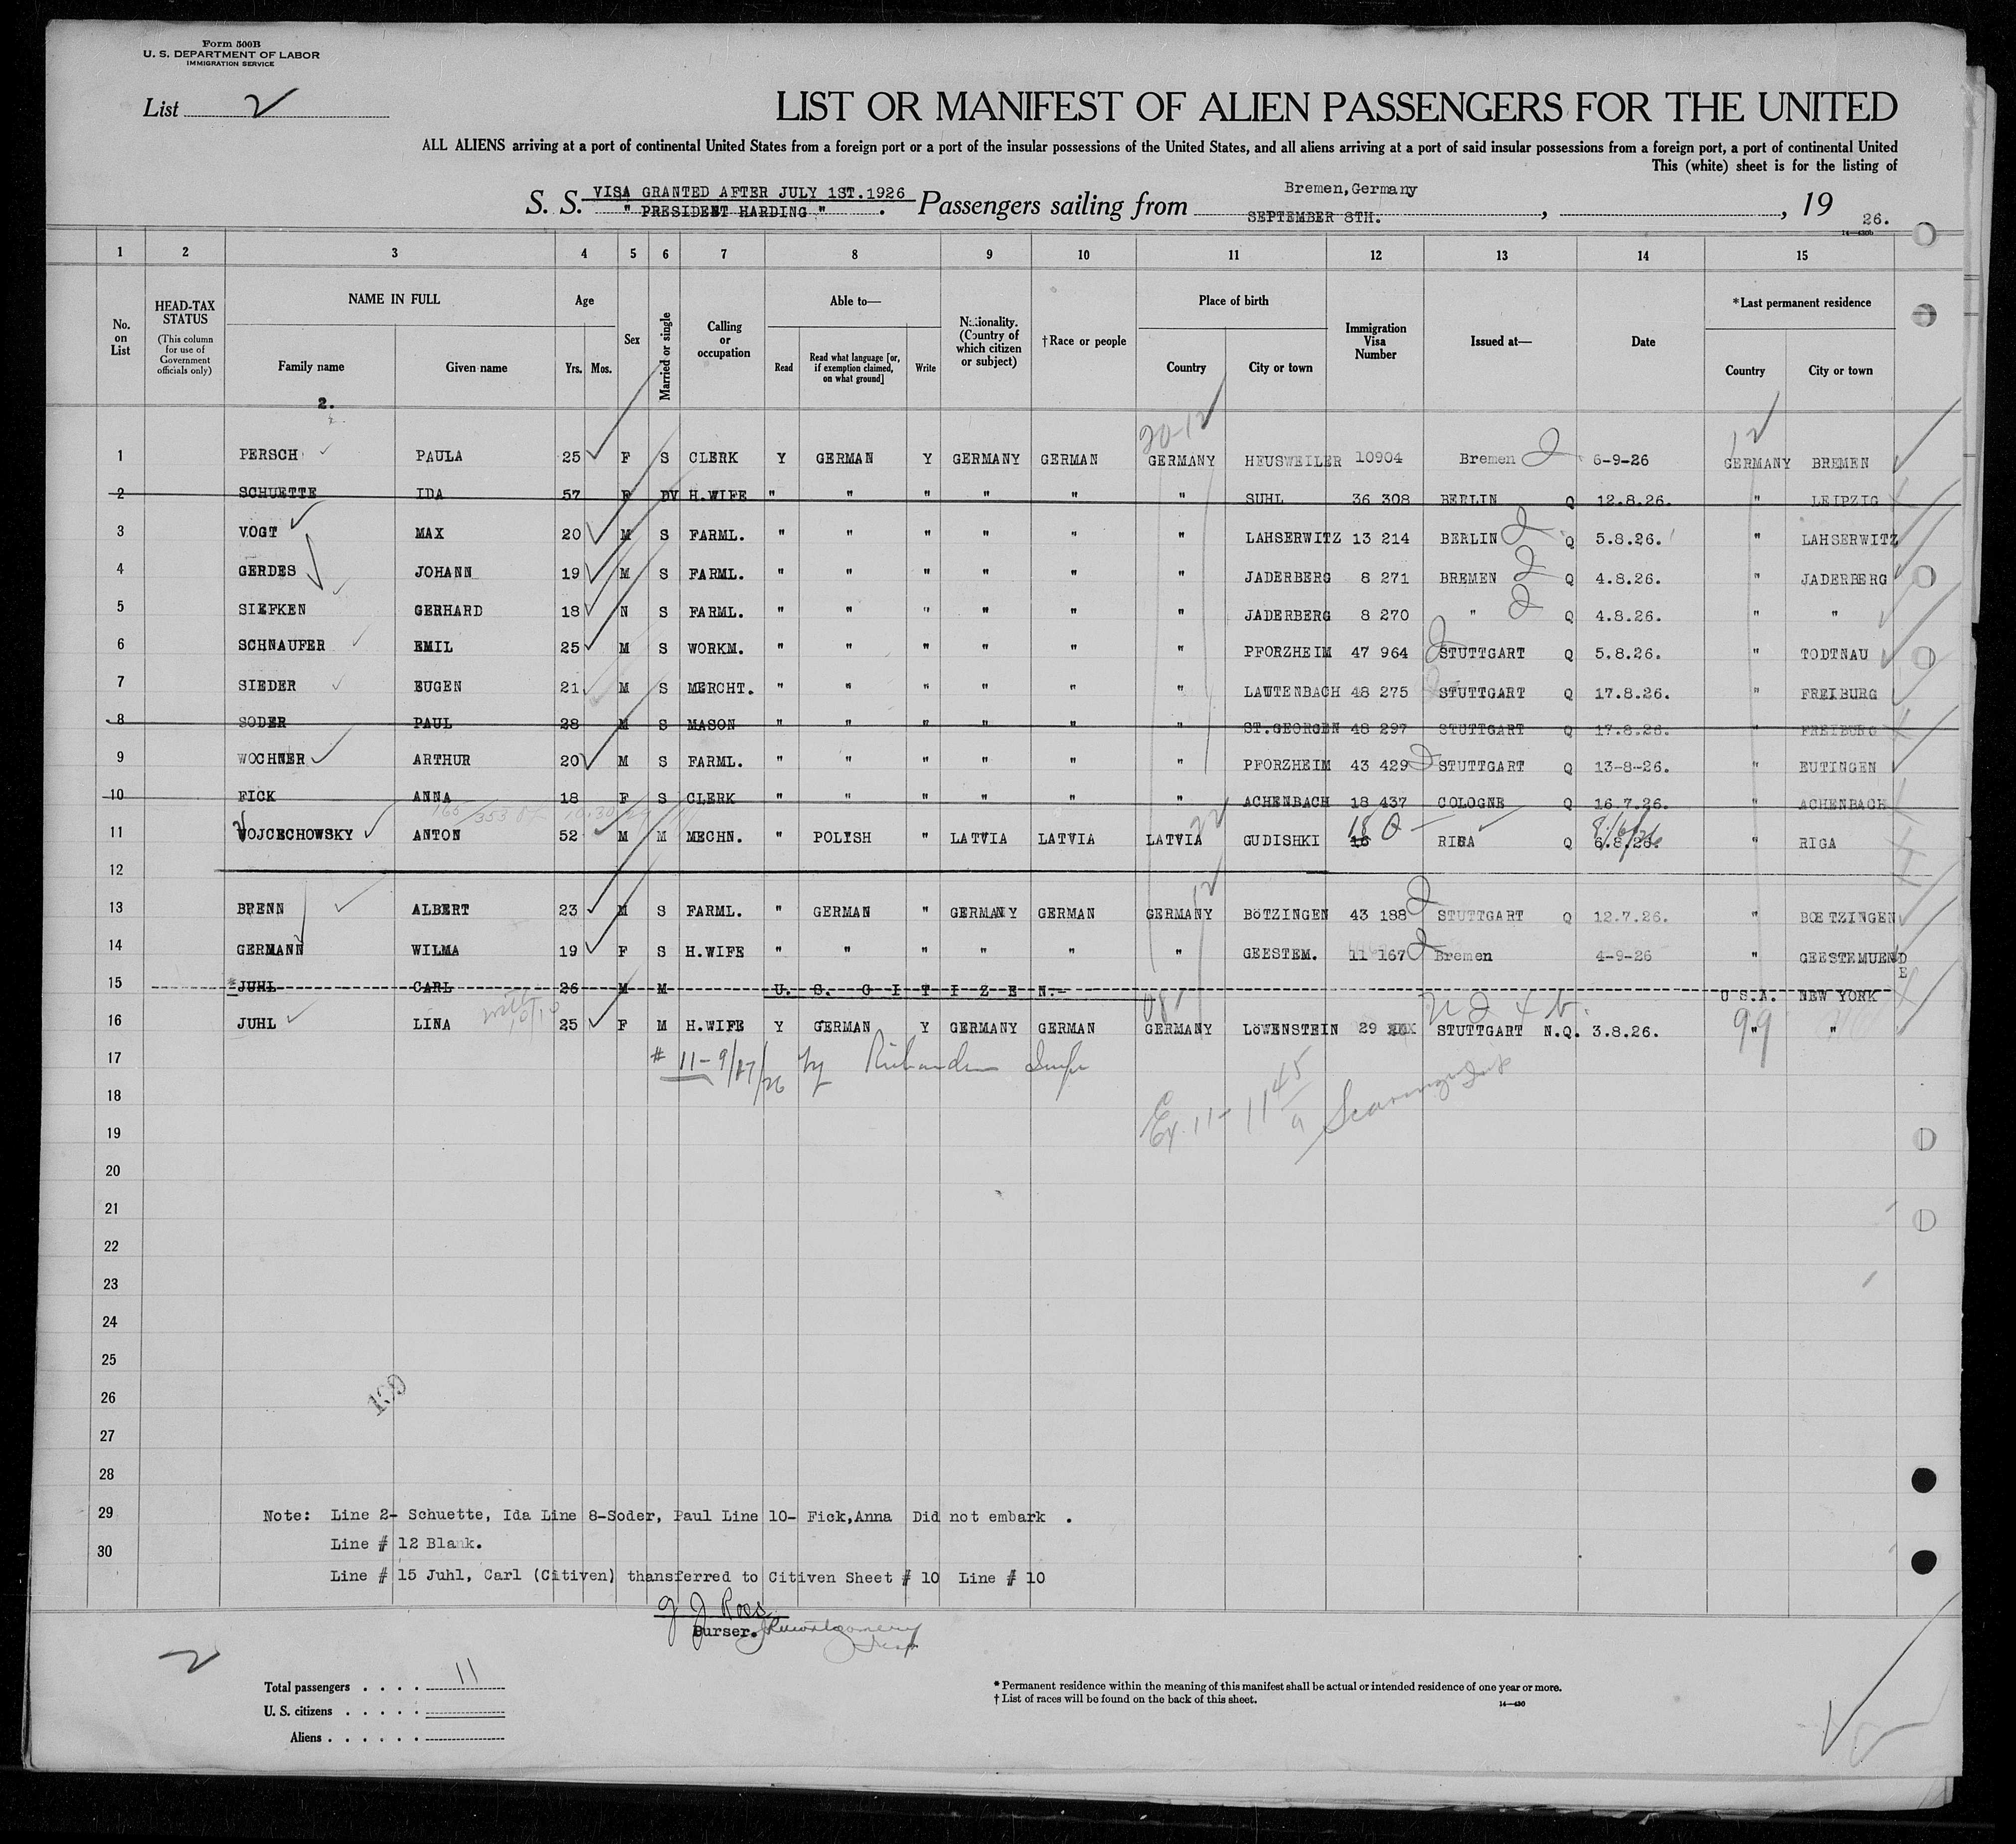 Form 500B
U. S. DEPARTMENT OF LABOR
IMMIGRATION SERVICE
List 2
LIST OR MANIFEST OF ALIEN PASSENGERS FOR THE UNITED
ALL ALIENS arriving at a port of continental United States from a foreign port or a port of the insular possessions of the United States, and all aliens arriving at a port of said insular possessions from a foreign port, a port of continental United
This (white) sheet is for the listing of
VISA GRANTED AFTER JULY 1ST.1926 Bremen,Germany
S. S. " PRESIDENT HARDING " . Passengers sailing from SEPTEMBER 8TH. , , 19 26.
1 2 3 4 5 6 7 8 9 10 11 12 13 14 15
No. on List
HEAD-TAX STATUS
(This column for use of Government officials only)
NAME IN FULL
Family name Given name
Age
Yrs. Mos.
Sex
Married or single
Calling or occupation
Able to—
Read
Read what language [or, if exemption claimed, on what ground]
Write
Nationality. (Country of which citizen or subject)
†Race or people
Place of birth
Country City or town
Immigration Visa Number
Issued at—
Date
*Last permanent residence
Country City or town
2.
20-12 12
1 PERSCH PAULA 25 F S CLERK Y GERMAN Y GERMANY GERMAN GERMANY HEUSWEILER 10904 Bremen 6-9-26 GERMANY BREMEN
2 SCHUETTE IDA 57 F DV H.WIFE " " " " " " SUHL 36 308 BERLIN Q 12.8.26. " LEIPZIG
3 VOGT MAX 20 M S FARML. " " " " " " LAHSERWITZ 13 214 BERLIN Q 5.8.26. " LAHSERWITZ
4 GERDES JOHANN 19 M S FARML. " " " " " " JADERBERG 8 271 BREMEN Q 4.8.26. " JADERBERG
5 SIEFKEN GERHARD 18 N S FARML. " " " " " " JADERBERG 8 270 " Q 4.8.26. " "
6 SCHNAUFER EMIL 25 M S WORKM. " " " " " " PFORZHEIM 47 964 STUTTGART Q 5.8.26. " TODTNAU
7 SIEDER EUGEN 21 M S MERCHT. " " " " " " LAUTENBACH 48 275 STUTTGART Q 17.8.26. " FREIBURG
8 SODER PAUL 28 M S MASON " " " " " " ST.GEORGEN 48 297 STUTTGART Q 17.8.26. " FREIBURG
9 WOCHNER ARTHUR 20 M S FARML. " " " " " " PFORZHEIM 43 429 STUTTGART Q 13-8-26. " EUTINGEN
10 FICK ANNA 18 F S CLERK " " " " " " ACHENBACH 18 437 COLOGNE Q 16.7.26. " ACHENBACH
11 WOJCECHOWSKY ANTON 52 M M MECHN. " POLISH " LATVIA LATVIA LATVIA GUDISHKI 16 18 Q RIGA Q 6.8.26. " RIGA
12
13 BRENN ALBERT 23 M S FARML. " GERMAN " GERMANY GERMAN GERMANY BöTZINGEN 43 188 STUTTGART Q 12.7.26. " BOETZINGEN
14 GERMANN WILMA 19 F S H.WIFE " " " " " " GEESTEM. 11 167 Bremen 4-9-26 " GEESTEMUENDE
15 *JUHL CARL 26 M M U. S. C I T I Z E N.- U S.A. NEW YORK
16 JUHL LINA 25 F M H.WIFE Y GERMAN Y GERMANY GERMAN GERMANY LöWENSTEIN 29 STUTTGART N.Q. 3.8.26. " "
99
17 # 11- 9/27/26 by
18
Ex. 11- 11 45/a
19
20
21
22
23
24
25
26
27
28
29 Note: Line 2- Schuette, Ida Line 8-Soder, Paul Line 10- Fick,Anna Did not embark .
30 Line # 12 Blank.
Line # 15 Juhl, Carl (Citiven) thansferred to Citiven Sheet # 10 Line # 10
J Roes
Purser.
2
Total passengers . . . . 11
U. S. citizens . . . . .
Aliens . . . . . .
* Permanent residence within the meaning of this manifest shall be actual or intended residence of one year or more.
† List of races will be found on the back of this sheet.
14—430